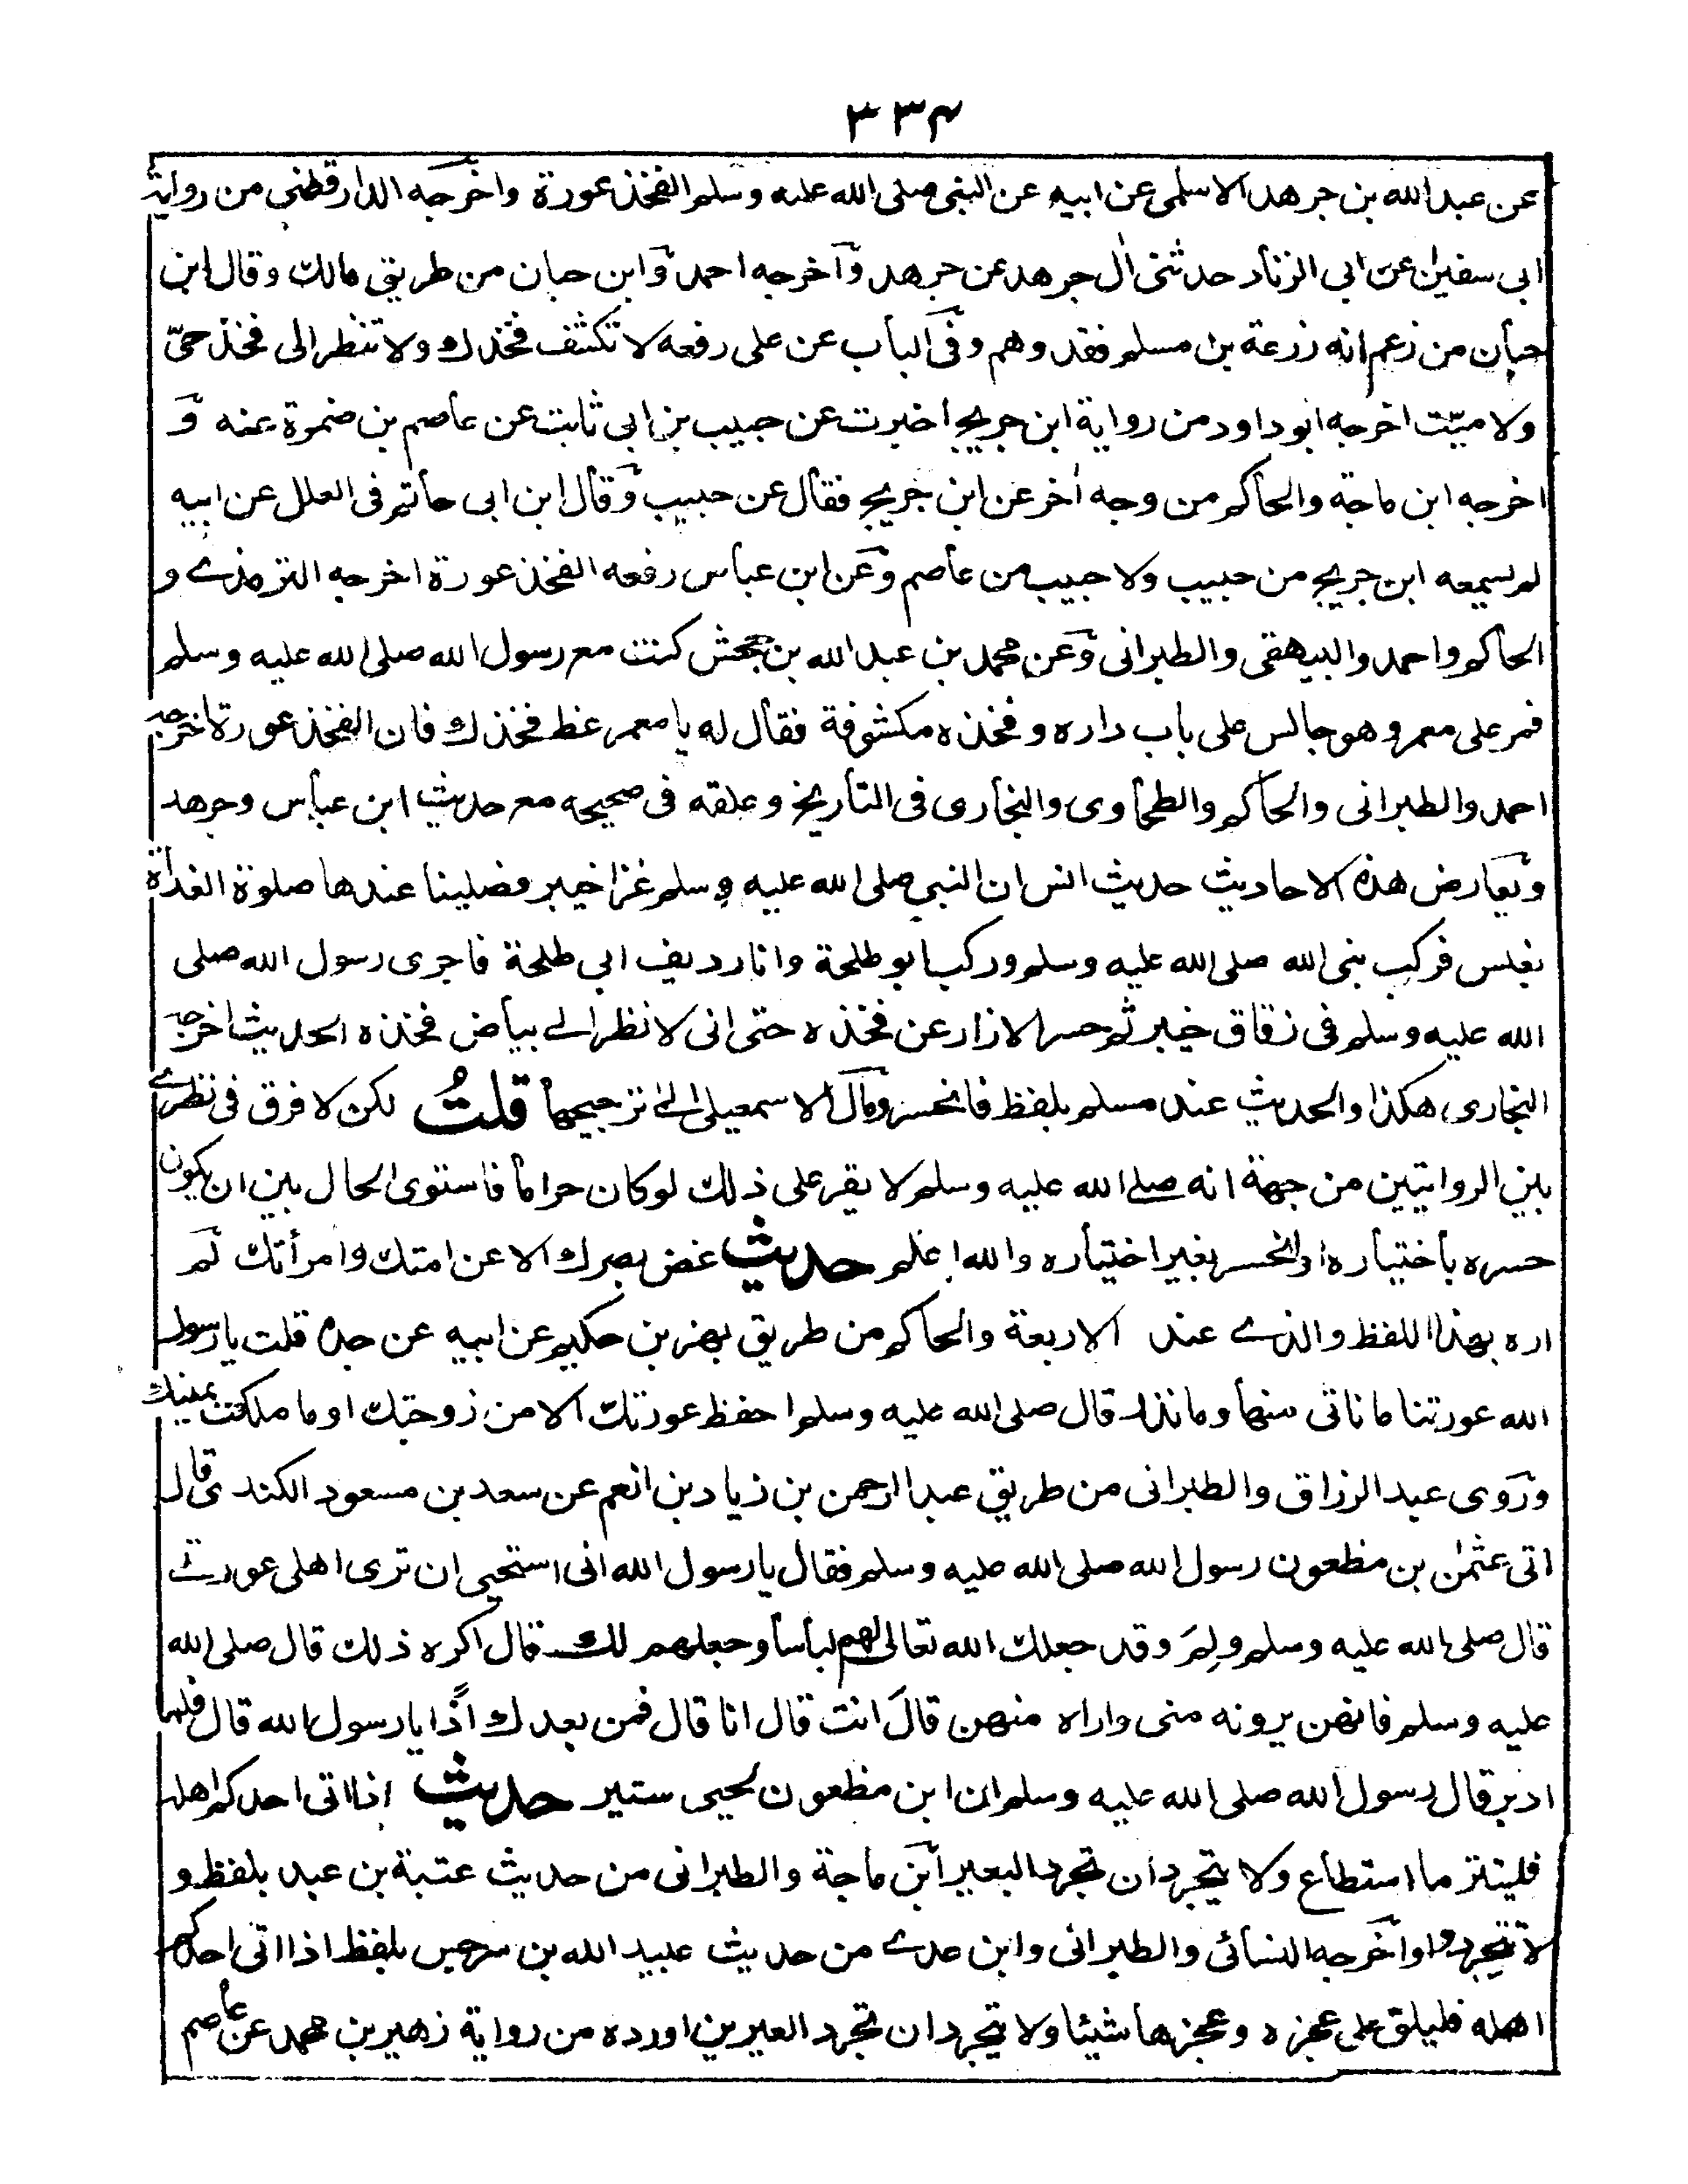 ٣٣٤
عن عبدالله بن جرهد الاسلمى عن ابيه عن النبى صلى الله عليه وسلم الفخذ عورة واخرجه الدارقطنى من رواية
ابى سفين عن ابى الزناد حدثنى اٰل جرهد عن جرهد وآخرجه احمد وابن حبان من طريق مالك وقال ابن
حبان من زعم انه زرعة بن مسلم فقد وهم وفى الباب عن على رفعه لا تكشف فخذك ولا تنظر الى فخذ حىّ
ولا ميّت اخرجه ابوداود من رواية ابن جريج اخبرت عن حبيب بن ابى ثابت عن عاصم بن ضمرة عنه و
اخرجه ابن ماجة والحاكم من وجه اٰخر عن ابن جريج فقال عن حبيب وقال ابن ابى حاتم فى العلل عن ابيه
لم يسمعه ابن جريج من حبيب ولا حبيب من عاصم وعن ابن عباس رفعه الفخذ عورة اخرجه الترمذے و
الحاكم واحمد والبيهقى والطبرانى وعن محمد بن عبد الله بن جحش كنت مع رسول الله صلى الله عليه وسلم
فمر على معمر وهو جالس على باب داره وفخذه مكشوفة فقال له يا معمر غط فخذك فان الفخذ عورة اخرجه
احمد والطبرانى والحاكم والطحاوى والبخارى فى التاريخ وعلقه فى صحيحه مع حديث ابن عباس وجرهد
وتعارض هذه الاحاديث حديث انس ان النبى صلى الله عليه وسلم غزا خيبر فصلينا عندها صلوة الغداة
بغلس فركب نبى الله صلى الله عليه وسلم وركب ابو طلحة وانا رديف ابى طلحة فاجرى رسول الله صلى
الله عليه وسلم فى زقاق خيبر ثم حسر الازار عن فخذه حتى انى لانظر الے بياض فخذه الحديث اخرجه
البخارى هكذا والحديث عند مسلم بلفظ فانحسر ومال الاسمعيلى الىٰ ترجيحها قلتُ لكن لا فرق فى نظرے
بين الروايتين من جهة انه صلے الله عليه وسلم لا يقر على ذلك لوكان حراما فاستوى الحال بين ان يكون
حسره باختياره او انحسر بغير اختياره والله اعلم حديث غض بصرك الا عن امتك وامرأتك لم
اره بهذا اللفظ والذے عند الاربعة والحاكم من طريق بهز بن حكيم عن ابيه عن جده قلت يا رسول
الله عورتنا ما ناتى منها وما نذر قال صلى الله عليه وسلم احفظ عورتك الا من زوجتك اوما ملكت يمينك
وروى عبد الرزاق والطبرانى من طريق عبد الرحمن بن زياد بن انعم عن سعد بن مسعود الكندى قال
اتى عثمٰن بن مظعون رسول الله صلى الله عليه وسلم فقال يا رسول الله انى استحيى ان ترى اهلى عورتے
قال صلى الله عليه وسلم ولِمَ وقد جعلك الله تعالى لهم لباسا وجعلهم لك قال اكره ذلك قال صلى الله
عليه وسلم فانهن يرونه منى واراه منهن قالَ انت قال انا قال فمن بعدك اذًا يا رسول الله قال فلما
ادبر قال رسول الله صلى الله عليه وسلم ان ابن مظعون لحيى ستير حديث اذا اتى احدكم اهله
فليستتر ما استطاع ولا يتجردان تجرد البعير ابن ماجة والطبرانى من حديث عتبة بن عبد بلفظ و
لا تتجردوا واخرجه النسائى والطبرانى وابن عدے من حديث عبيد الله بن سرجس بلفظ اذا اتى احدكم
اهله فليلق على عجزه وعجزها شيئا ولا يتجردان تجرد العيرين اورده من رواية زهير بن محمد عن عاصم